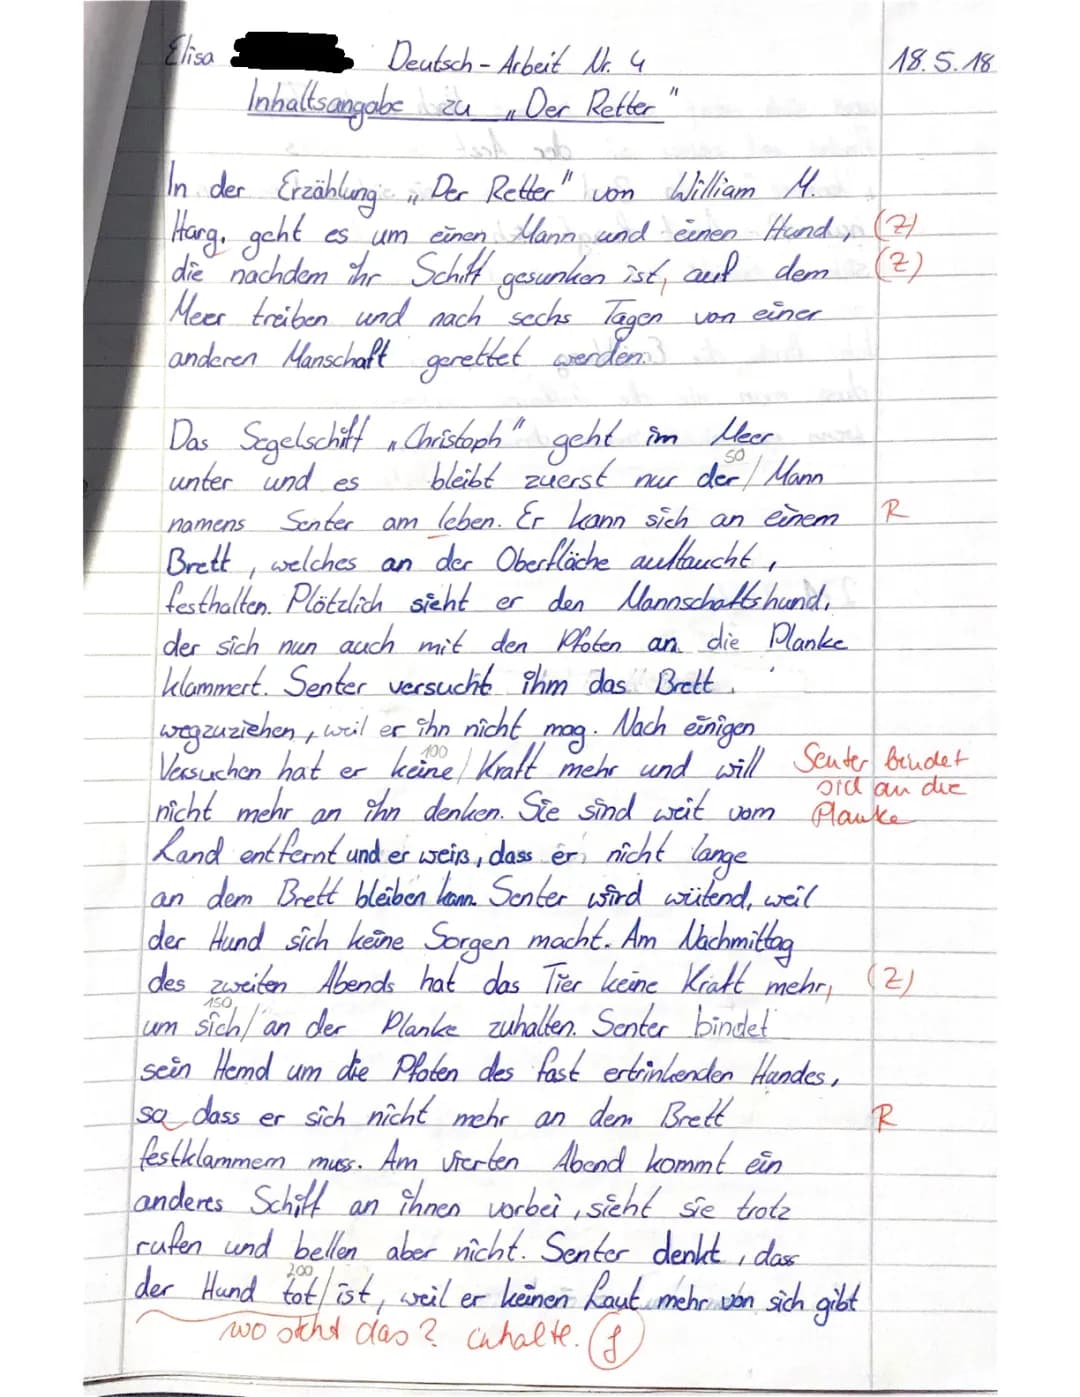 Elisa Deutsch-Arbeit Nr. 4 18.5.18
Inhaltsangabe zu „Der Retter"
In der Erzählung „Der Retter" von William M.
Harg. geht es um einen Mann und einen Hund, (Z)
die nachdem ihr Schiff gesunken ist, auf dem (Z)
Meer treiben und nach sechs Tagen von einer
anderen Manschaft gerettet werden.
Das Segelschiff „Christoph" geht im Meer
50
unter und es bleibt zuerst nur der/ Mann
namens Senter am leben. Er kann sich an einem R
Brett, welches an der Oberfläche auftaucht,
festhalten. Plötzlich sieht er den Mannschaftshund,
der sich nun auch mit den Pfoten an die Planke
klammert. Senter versucht ihm das Brett
wegzuziehen, weil er ihn nicht mag. Nach einigen
100
Versuchen hat er keine/ Kraft mehr und will Senter bindet
nicht mehr an ihn denken. Sie sind weit vom sich an die
Planke
Land entfernt und er weiß, dass er nicht lange
an dem Brett bleiben kann. Senter wird wütend, weil
der Hund sich keine Sorgen macht. Am Nachmittag
des zweiten Abends hat das Tier keine Kraft mehr, (Z)
150
um sich/ an der Planke zuhalten. Senter bindet
sein Hemd um die Pfoten des fast ertrinkenden Hundes,
so dass er sich nicht mehr an dem Brett R
festklammern muss. Am vierten Abend kommt ein
anderes Schiff an ihnen vorbei, sieht sie trotz
rufen und bellen aber nicht. Senter denkt, dass
200
der Hund tot/ ist, weil er keinen Laut mehr von sich gibt
wo steht das? Inhalte. f